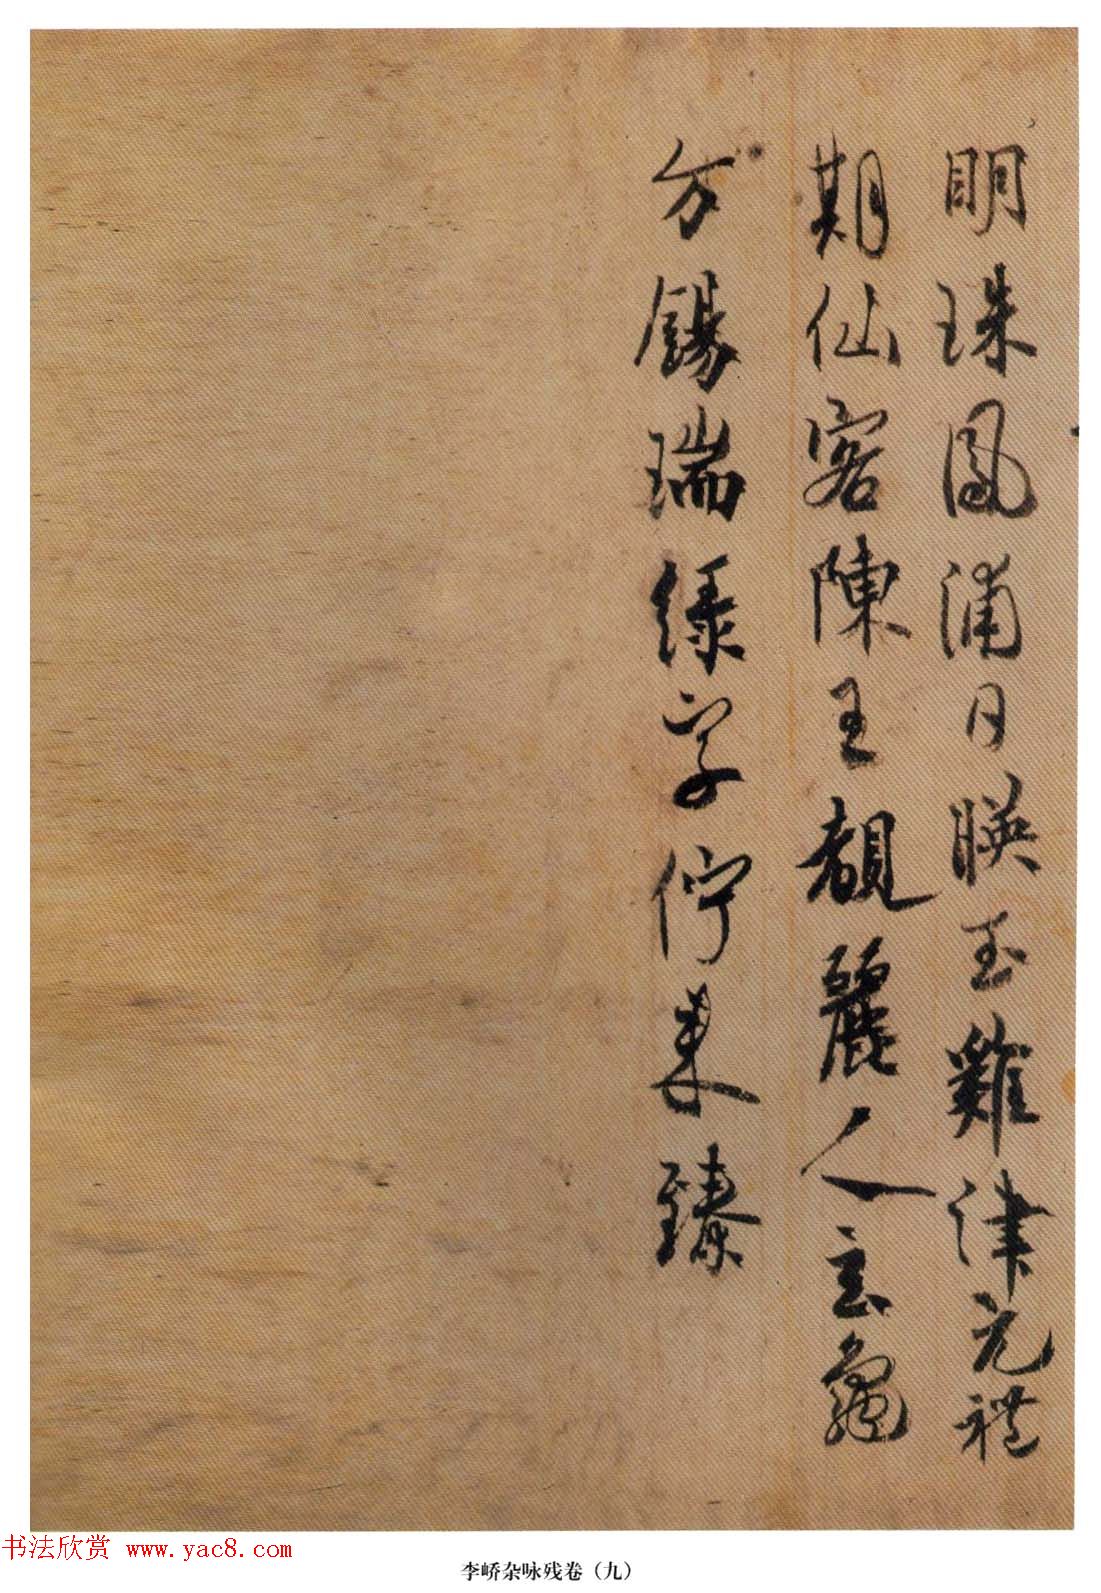 明珠鳳浦月暎玉雞津元禮
期仙客陳王覩麗人玄龜
方錫瑞綠字佇来臻
书法欣赏 www.yac8.com
李峤杂咏残卷（九）